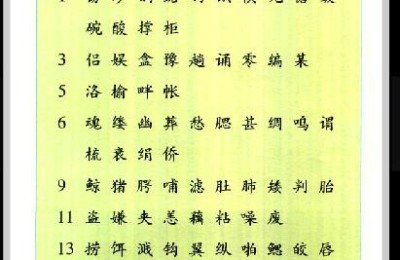 碗 酸 撑 柜
3 侣 娱 盒 豫 趟 诵 零 编 某
5 洛 榆 畔 帐
6 魂 缕 幽 葬 愁 腮 甚 绸 鸣 谓
梳 衰 绢 侨
9 鲸 猪 腭 哺 滤 肚 肺 矮 判 胎
11 盗 嫌 夹 恙 藕 粘 噪 废
13 捞 饵 溅 钩 翼 纵 啪 鳃 皎 唇